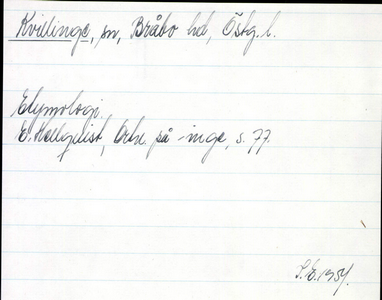 Kvillinge, sn, Bråbo hd, Östg. l.
Etymologi.
E. Hellquist, Ortn. på -inge, s. 77.
1954.